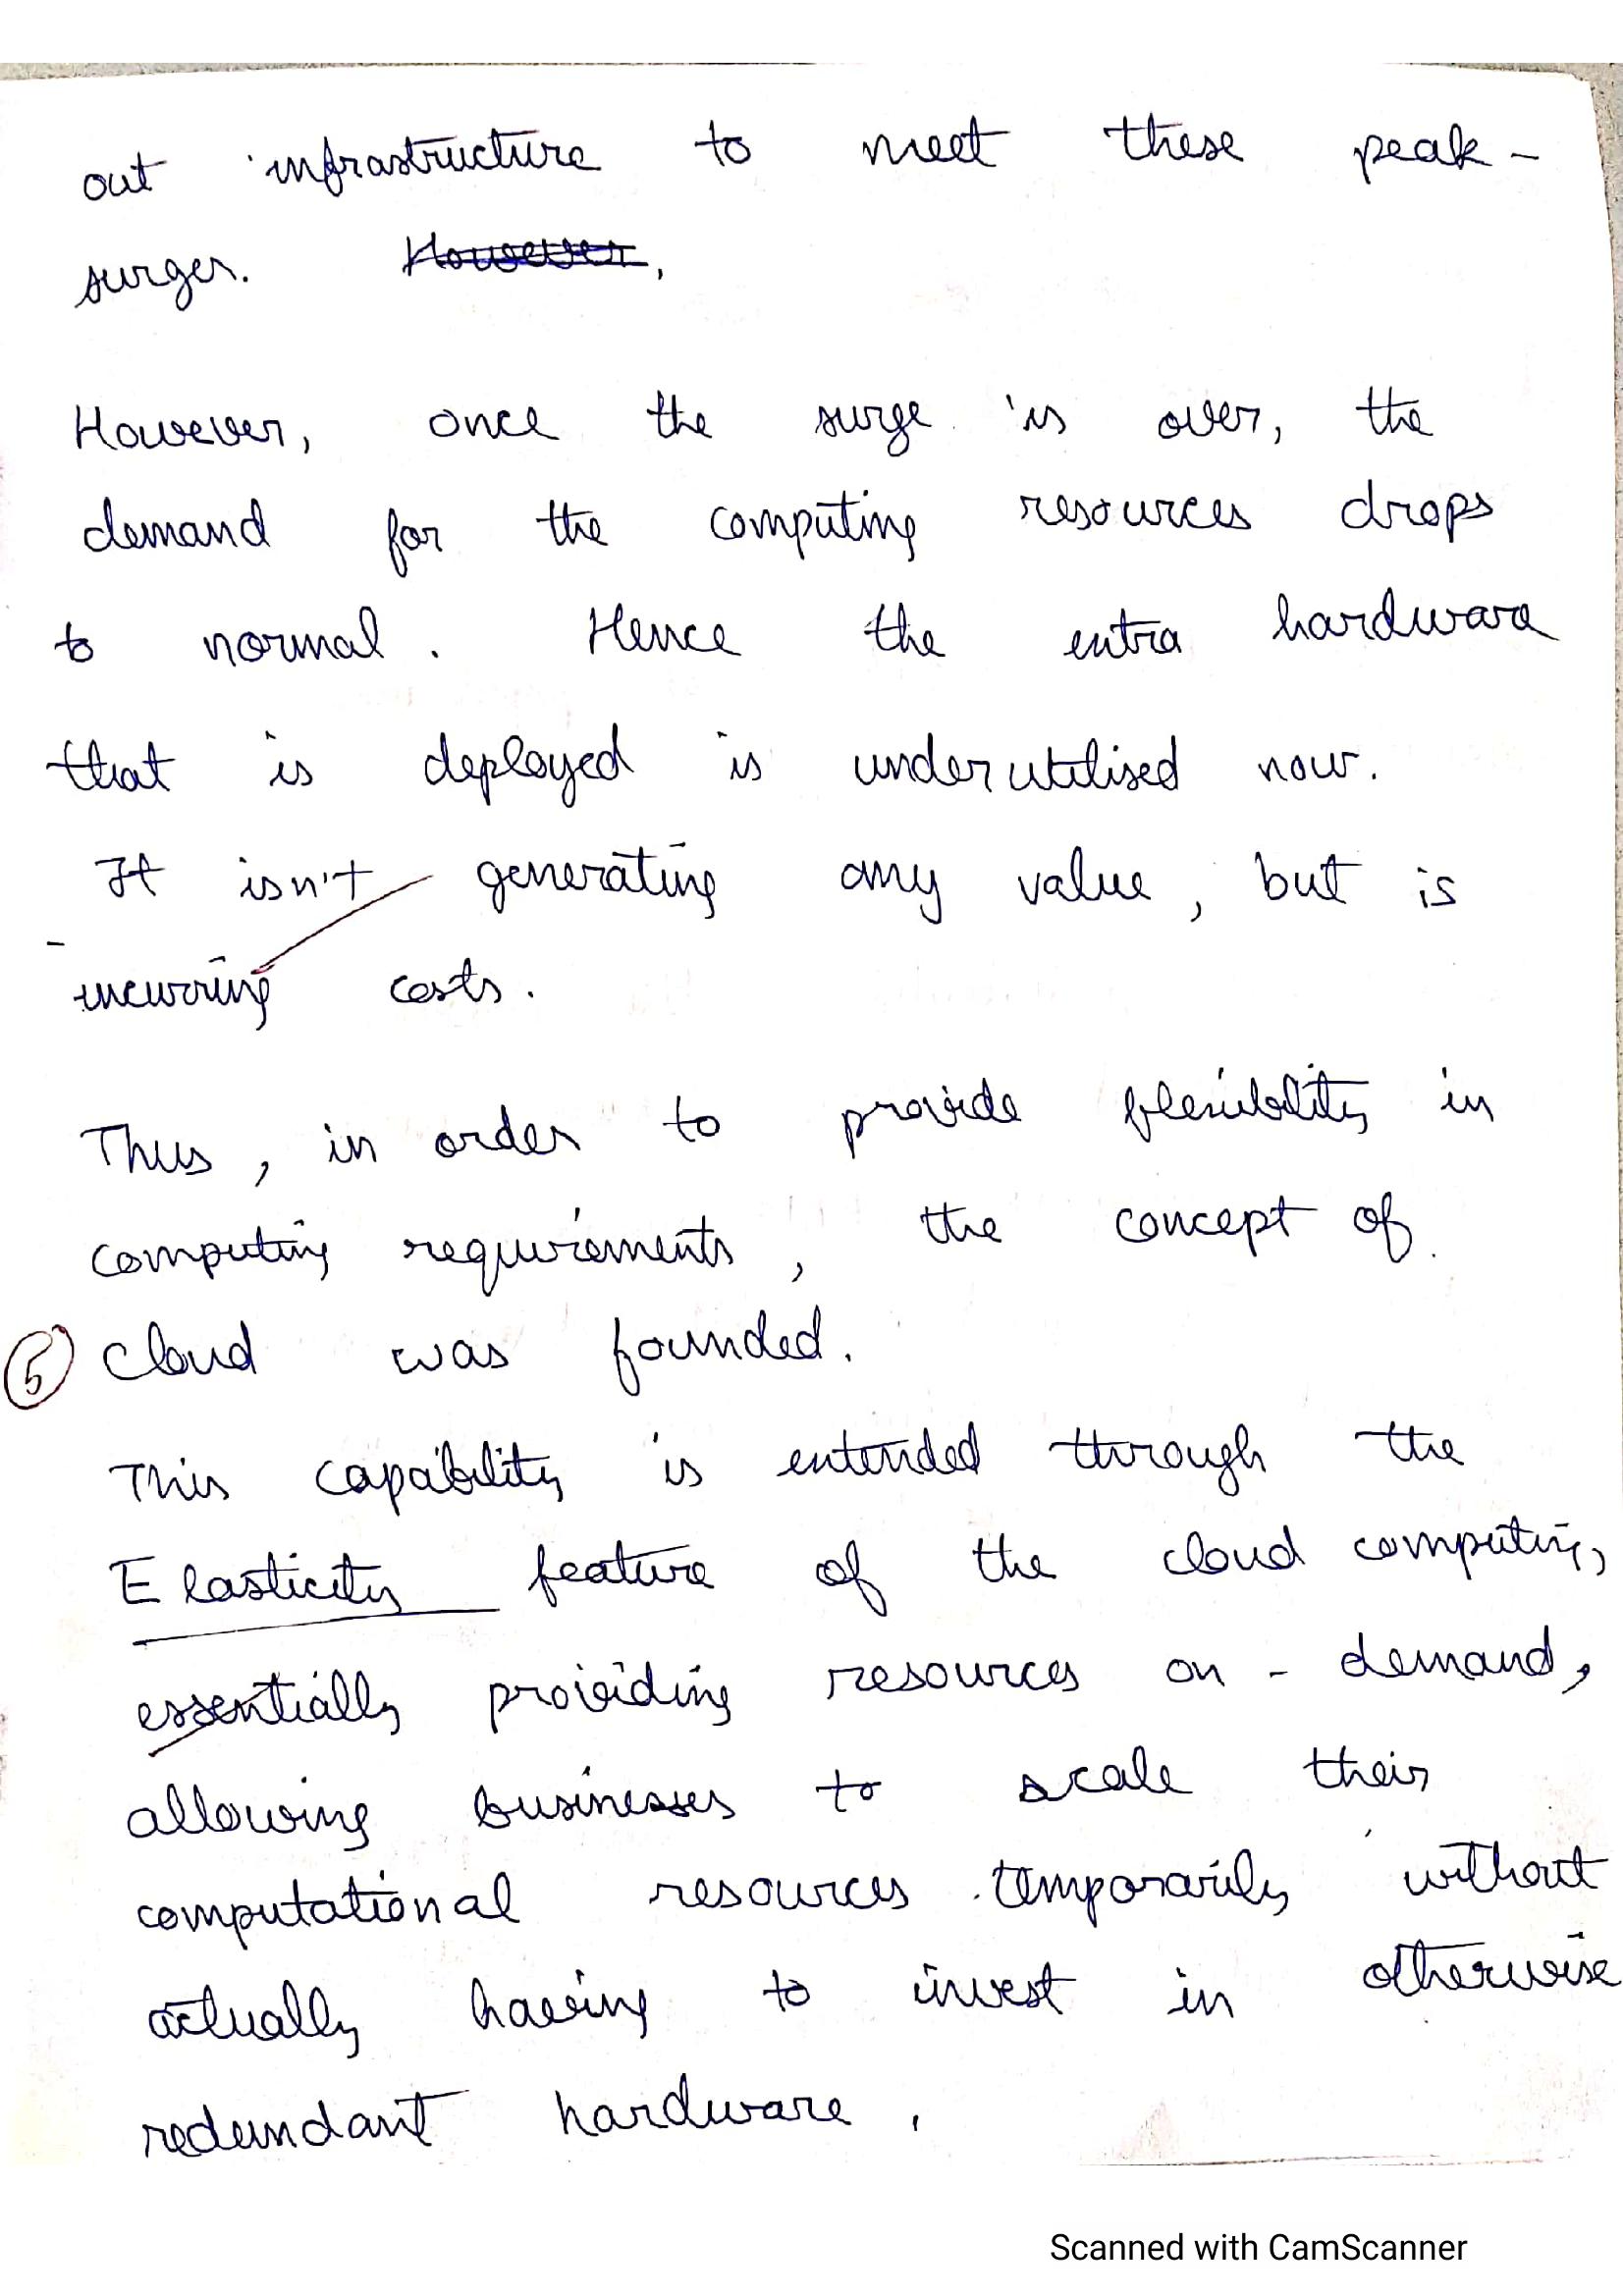 out infrastructure to meet these peak -
surges. However,
However, once the surge is over, the
demand for the computing resources drops
to normal. Hence the extra hardware
that is deployed is underutilised now.
It isn't generating any value, but is
incurring costs.
Thus, in order to provide flexiblity in
computing requirements, the concept of
5 cloud was founded.
This capability is extended through the
Elasticity feature of the cloud computing,
essentially providing resources on - demand,
allowing businesses to scale their
computational resources temporarily without
actually having to invest in otherwise
redundant hardware.
Scanned with CamScanner